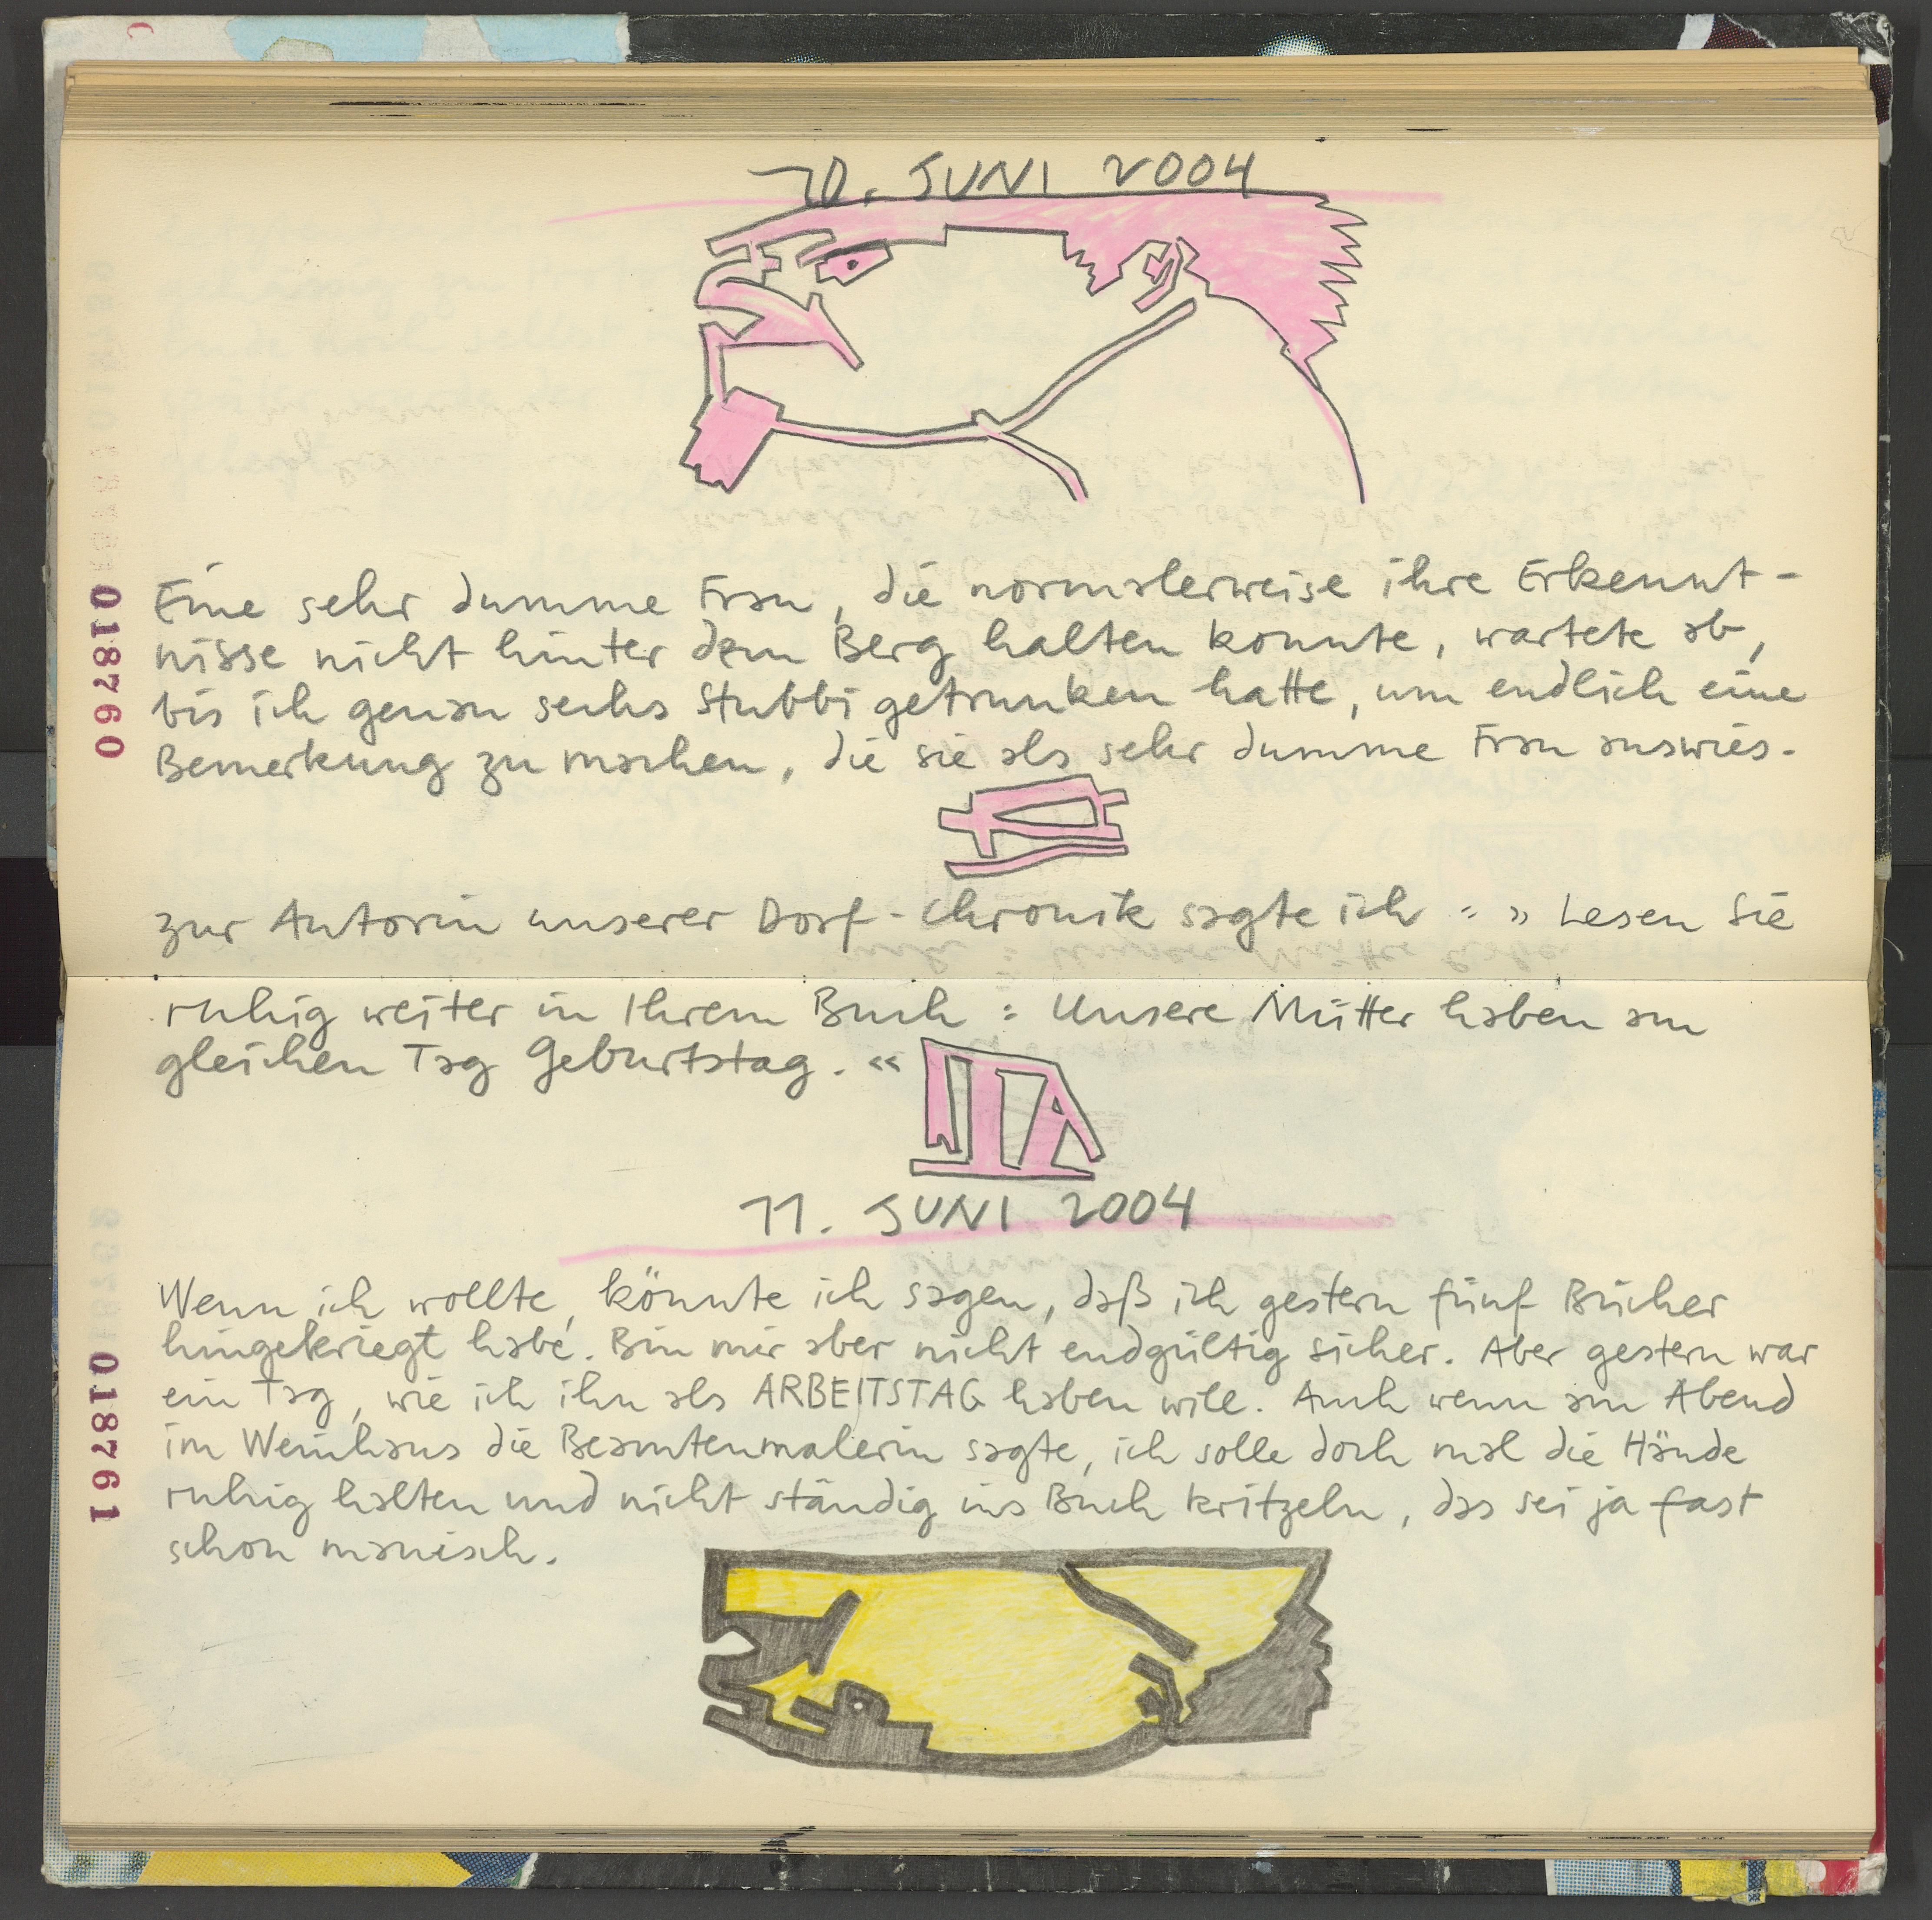 10. JUNI 2004
Eine sehr dumme Frau, die normalerweise ihre Erkennt-
nisse nicht hinter dem Berg halten konnte, wartete ab,
bis ich genau sechs Stubbi getrunken hatte, um endlich eine
Bemerkung zu machen, die sie als sehr dumme Frau auswies.
zur Autorin unserer Dorf-Chronik sagte ich : » Lesen Sie
018760
ruhig weiter in Ihrem Buch : Unsere Mütter haben am
gleichen Tag Geburtstag. «
11. JUNI 2004
Wenn ich wollte, könnte ich sagen, daß ich gestern fünf Bücher
hingekriegt habe. Bin mir aber nicht endgültig sicher. Aber gestern war
ein Tag, wie ich ihn als ARBEITSTAG haben will. Auch wenn am Abend
im Weinhaus die Beamtenmalerin sagte, ich solle doch mal die Hände
ruhig halten und nicht ständig ins Buch kritzeln, das sei ja fast
schon manisch.
018761